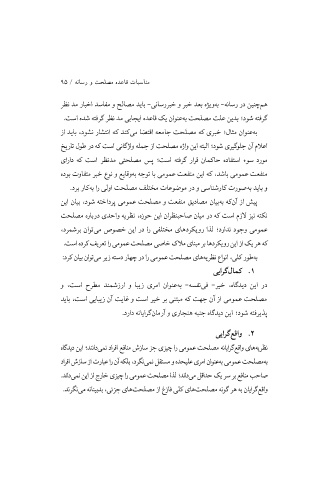 مناسبات قاعده مصلحت و رسانه / ۹۵
هم‌چنین در رسانه- به‌ویژه بعد خبر و خبررسانی- باید مصالح و مفاسد اخبار مد نظر
گرفته شود؛ بدین علت مصلحت به‌عنوان یک قاعده ایجابی مد نظر گرفته شده است.
به‌عنوان مثال؛ خبری که مصلحت جامعه اقتضا می‌کند که انتشار نشود، باید از
اعلام آن جلوگیری شود؛ البته این واژه مصلحت از جمله واژگانی است که در طول تاریخ
مورد سوء استفاده حاکمان قرار گرفته است؛ پس مصلحتی مدنظر است که دارای
منفعت عمومی باشد، که این منفعت عمومی با توجه به‌وقایع و نوع خبر متفاوت بوده
و باید به‌صورت کارشناسی و در موضوعات مختلف مصلحت اولی را به‌کار برد.
پیش از آن‌که به‌بیان مصادیق منفعت و مصلحت عمومی پرداخته شود، بیان این
نکته نیز لازم است که در میان صاحبنظران این حوزه، نظریه واحدی درباره مصلحت
عمومی وجود ندارد؛ لذا رویکردهای مختلفی را در این خصوص می‌توان برشمرد،
که هر یک از این رویکردها بر مبنای ملاک خاصی مصلحت عمومی را تعریف کرده است.
به‌طور کلی، انواع نظریه‌های مصلحت عمومی را در چهار دسته زیر می‌توان بیان کرد:
۱. کمال‌گرایی
در این دیدگاه، خیر- فی‌نفسه- به‌عنوان امری زیبا و ارزشمند مطرح است، و
مصلحت عمومی از آن جهت که مبتنی بر خیر است و غایت آن زیبایی است، باید
پذیرفته شود؛ این دیدگاه جنبه هنجاری و آرمان‌گرایانه دارد.
۲. واقع‌گرایی
نظریه‌های واقع‌گرایانه مصلحت عمومی را چیزی جز سازش منافع افراد نمی‌دانند؛ این دیدگاه
به‌مصلحت عمومی به‌عنوان امری علیحده و مستقل نمی‌نگرد، بلکه آن را عبارت از سازش افراد
صاحب منافع بر سر یک حداقل می‌داند؛ لذا مصلحت عمومی را چیزی خارج از این نمی‌داند.
واقع‌گرایان به هر گونه مصلحت‌های کلی فارغ از مصلحت‌های جزئی، بدبینانه می‌نگرند.